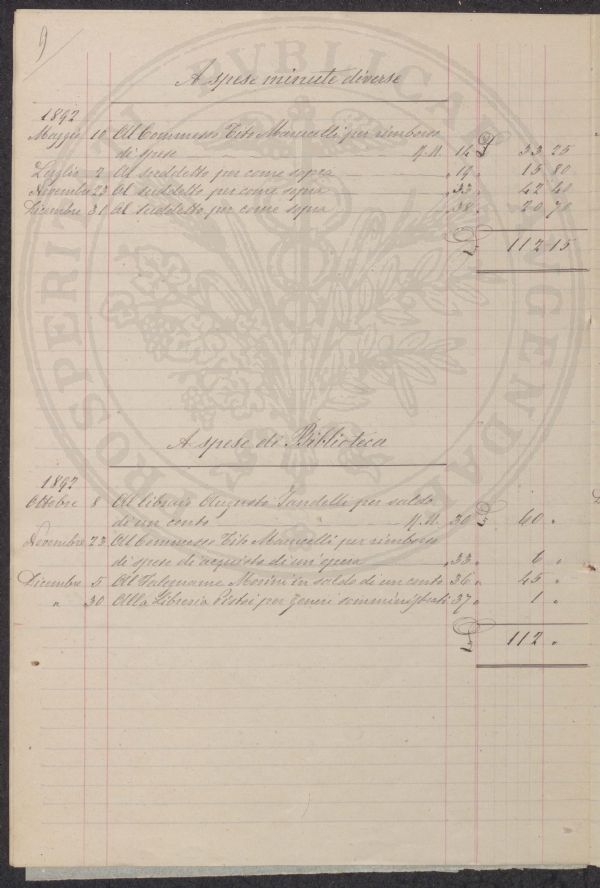 9
A spese minute diverse
1892
Maggio 10 Al Commesso Tito Marucelli per rimborso
di spese N.M. 14 £ 33 25
Luglio 2 Al suddetto per come sopra " 19 " 15 80
Novembre 23 Al suddetto per come sopra " 33 " 42 40
Dicembre 30 Al suddetto per come sopra " 38 " 20 70
£ 112 15
A spese di Biblioteca
1892
Ottobre 8 Al libraio Augusto per saldo
di un conto N.M. 30 £ 60 "
Novembre 23 Al Commesso Tito Marucelli per rimborso
di spese di acquisto di un'opera " 33 " 6 "
Dicembre 5 Al Falegname Morini in saldo di un conto 36 " 45 "
" 30 Alla Libreria per generi somministrati 37 " 1 "
£ 112 "